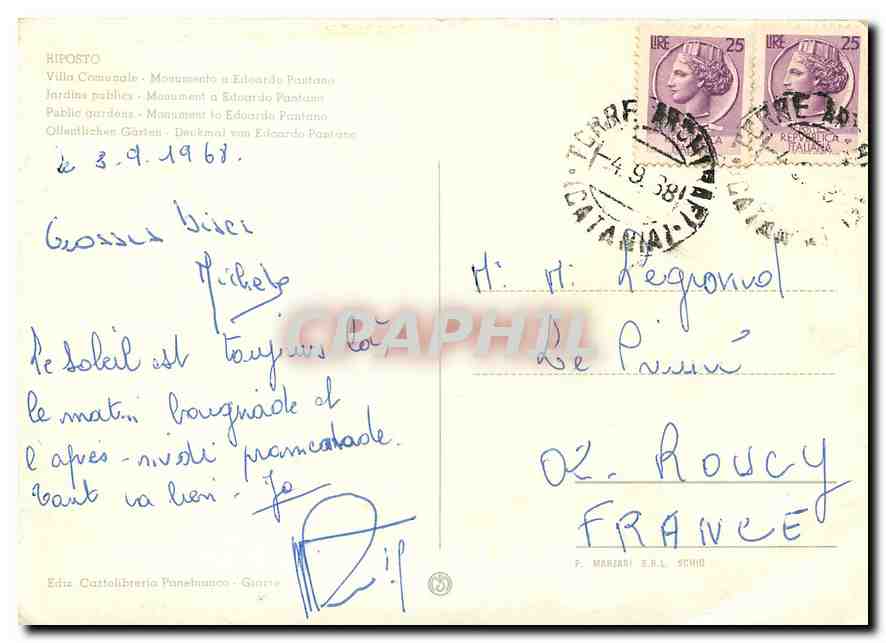 RIPOSTO
Villa Comunale - Monumento a Edoardo Pantano
Jardins publics - Monument a Edoardo Pantano
Public gardens - Monument to Edoardo Pantano
Offentlichen Gärten - Denkmal von Edoardo Pantano
le 3.9.1968.
Grosses bises
Michele
Le soleil est toujours là
le matin baignade et
l'après-midi promenade.
Tout va bien - Jo
Ediz. Cartolibreria Panebianco - Giarre
LIRE 25
REPUBBLICA
ITALIANA
LIRE 25
REPUBBLICA
ITALIANA
TORRE ARCHIRAFI
-4.9.68
(CATANIA)
TORRE
CATANIA
CPARHIL
Mr Mr Legrand
Le Prieuré
02. ROUCY
FRANCE
P. MARZARI S.R.L. SCHIO